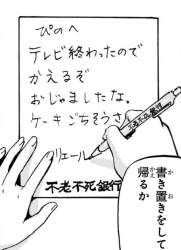 ぴのへ
テレビ終わったので
かえるぞ
おじゃましたな。
ケーキごちそうさん
リエール
不老不死銀行
書き置きをして
帰るか